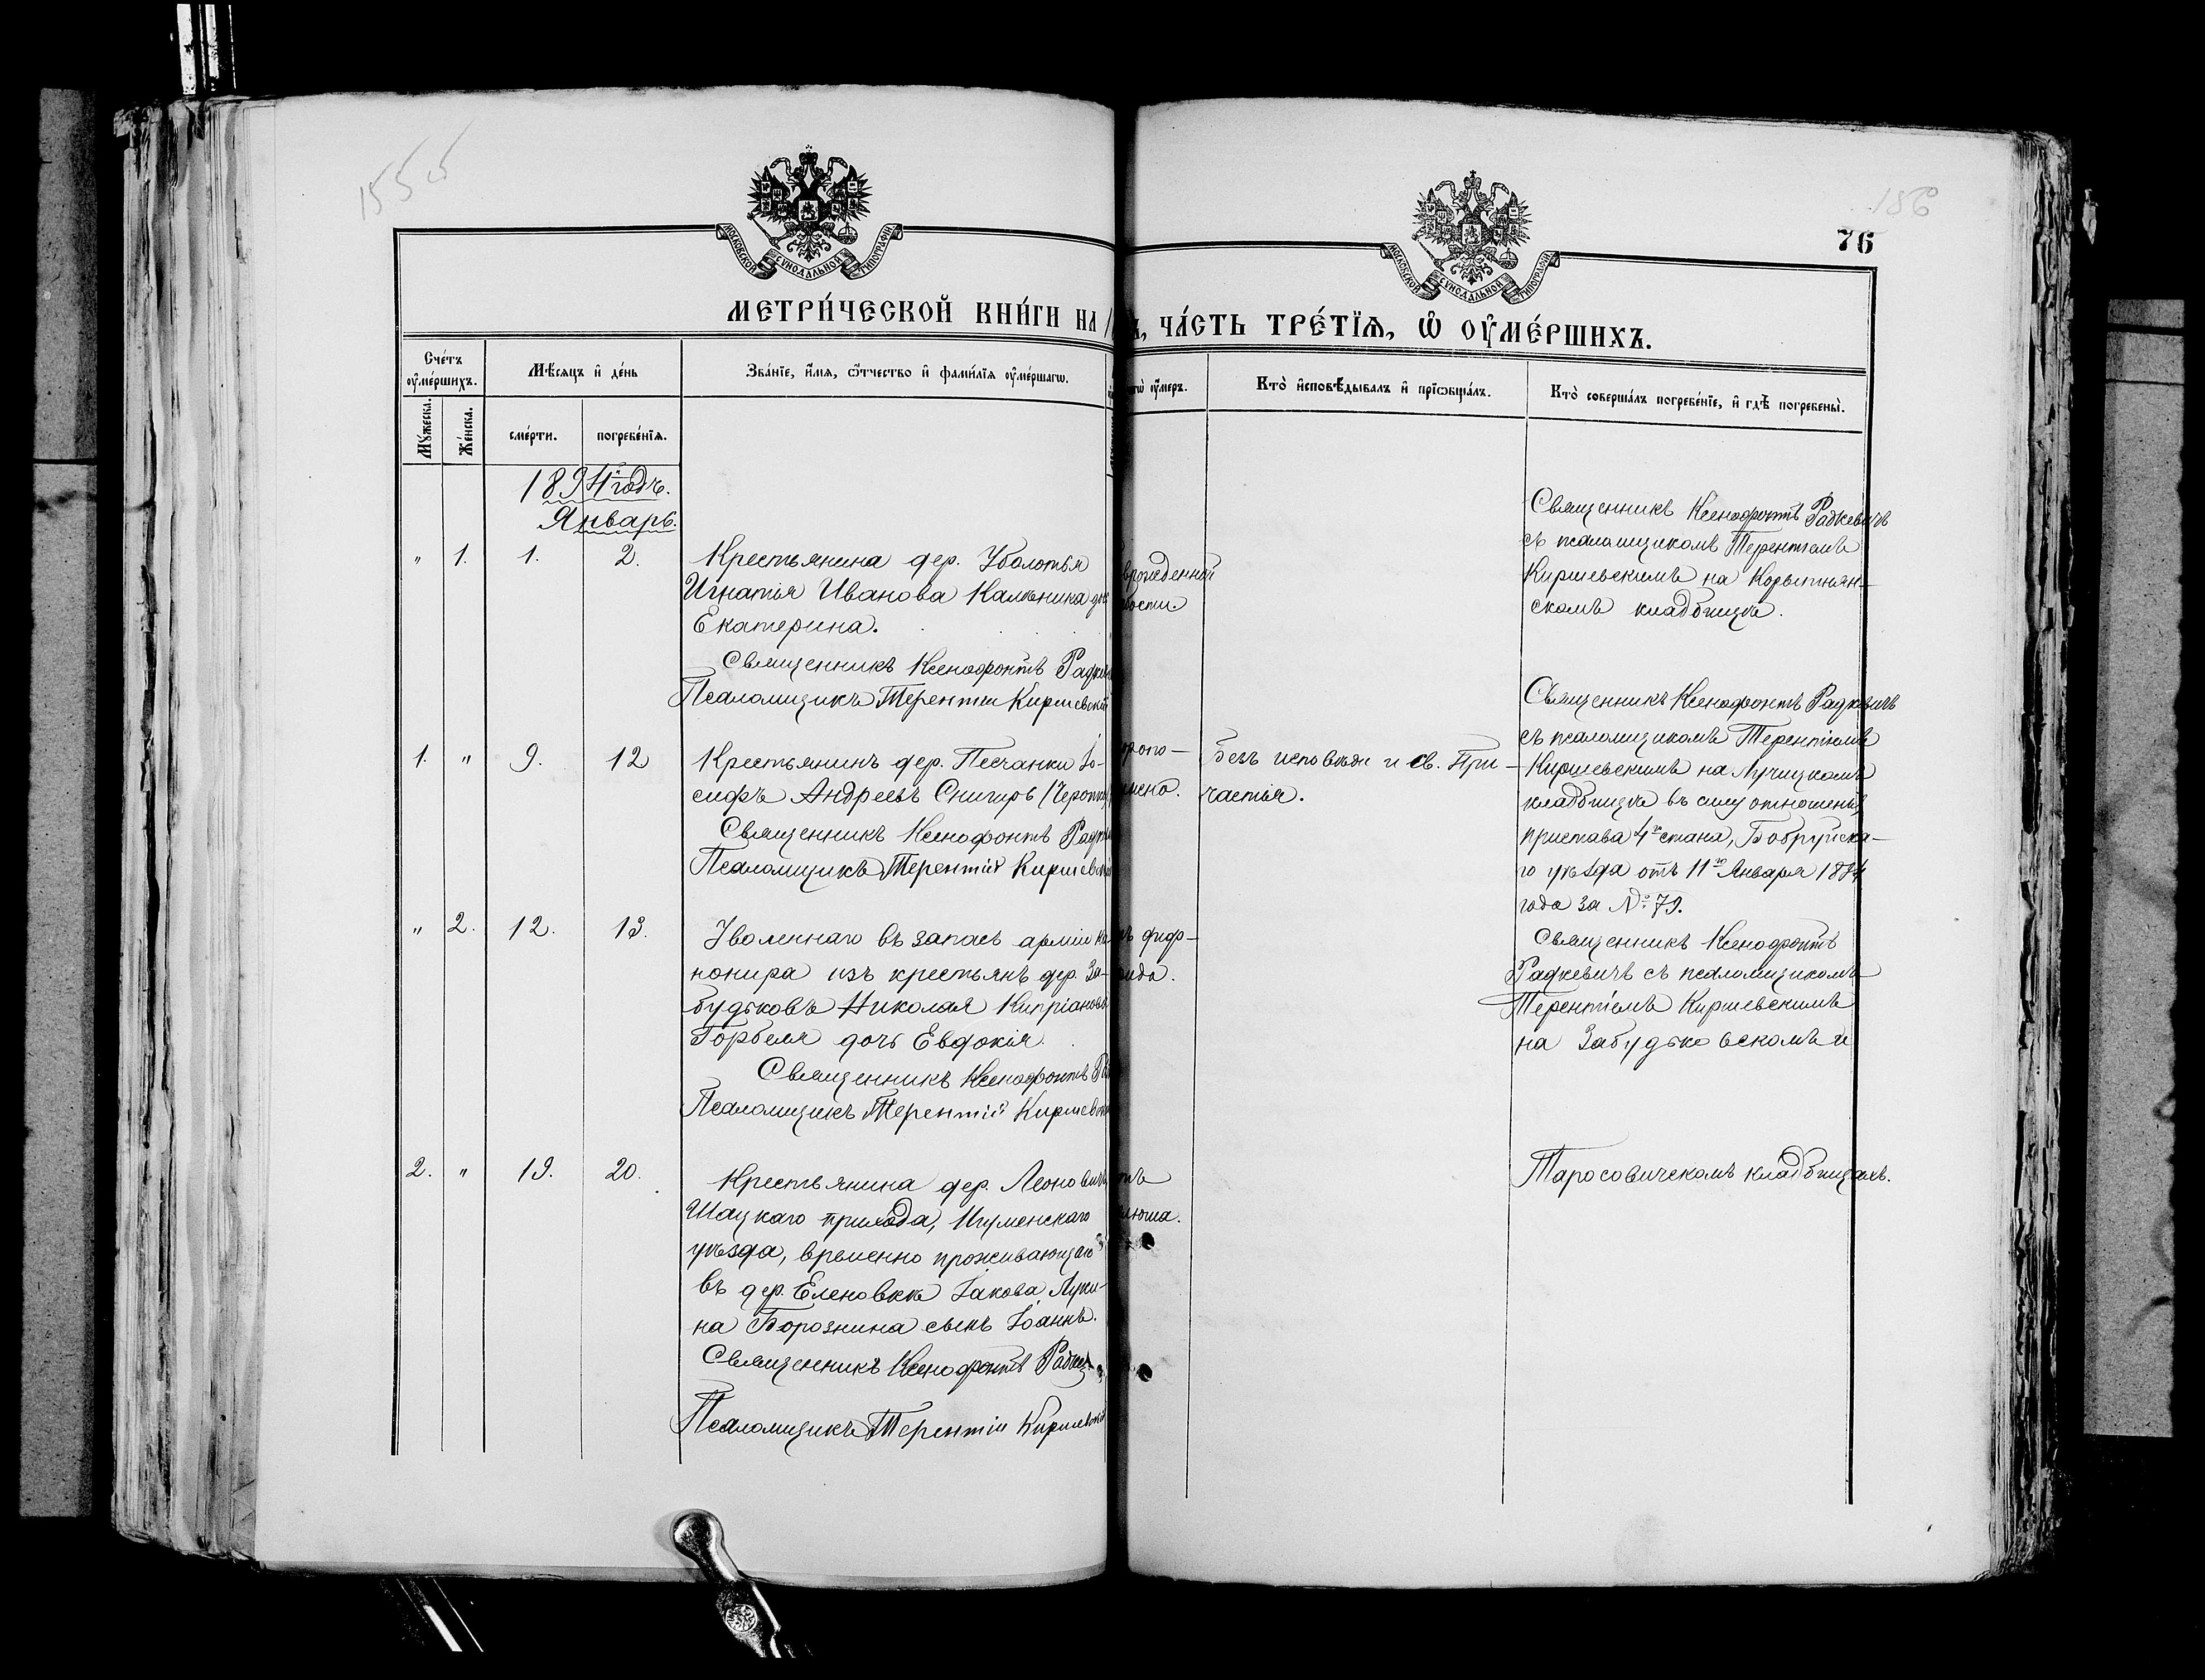 155
186
76
МОСКОВСКОЙ СѴНОДАЛЬНОЙ ТИПОГРАФІИ
МОСКОВСКОЙ СѴНОДАЛЬНОЙ ТИПОГРАФІИ
МЕТРИ́ЧЕСКОЙ КНИ́ГИ НА
ЧА́СТЬ ТРЕ́ТЇѦ, Ѡ҆ ОУ҆МЕ́РШИХЪ.
Сче́тъ оу҆ме́ршихъ.
Мѣ́сяцъ и҆ де́нь
Зва́нїе, и҆́мя, ѻ҆́тчество и҆ фами́лїя оу҆ме́ршагѡ.
оу҆́меръ.
Кто̀ и҆сповѣ́дывалъ и҆ прїѡбща́лъ.
Кто̀ соверша́лъ погребе́нїе, и҆ гдѣ̀ погребены̀.
Мꙋ́жеска.
Же́нска.
сме́рти.
погребе́нїя.
1894 годъ.
Январь.
" 1. 1. 2.
Крестьянина дер. Уболотья
Игнатія Иванова Калѣника
Екатерина.
Священникъ Ксенофонтъ
Псаломщикъ Терентій Киршевскій
врожденной
Священникъ Ксенофонтъ Радкевичъ
съ псаломщикомъ Терентіемъ
Киршевскимъ на Корытнян-
скомъ кладбищѣ.
1. " 9. 12
Крестьянинъ дер. Песчанки Іо-
сифъ Андреевъ Снигирь
Священникъ Ксенофонтъ
Псаломщикъ Терентій Киршевскій
безъ исповѣди и св. При-
частія.
Священникъ Ксенофонтъ Радкевичъ
съ псаломщикомъ Терентіемъ
Киршевскимъ на Лучицкомъ
кладбищѣ въ силу отношенія
пристава 4го стана, Бобруйска-
го уѣзда отъ 11го Января 1894
года за №79.
" 2. 12. 13.
Уволеннаго въ запасъ арміи ка-
нонира изъ крестьянъ дер. За-
будьковъ Николая Кипріанова
Горбеля дочь Евдокія.
Священникъ Ксенофонтъ
Псаломщикъ Терентій
Священникъ Ксенофонтъ
Радкевичъ съ псаломщикомъ
Терентіемъ Киршевскимъ
на Забудьковскомъ и
2. " 19. 20.
Крестьянина дер. Леоновичъ
Шацкаго прихода, Игуменскаго
уѣзда, временно проживающаго
въ дер. Еленовкѣ Іакова Луки-
на Борознина сынъ Іоаннъ.
Священникъ Ксенофонтъ
Псаломщикъ Терентій Киршевскій
Таросовичскомъ кладбищахъ.